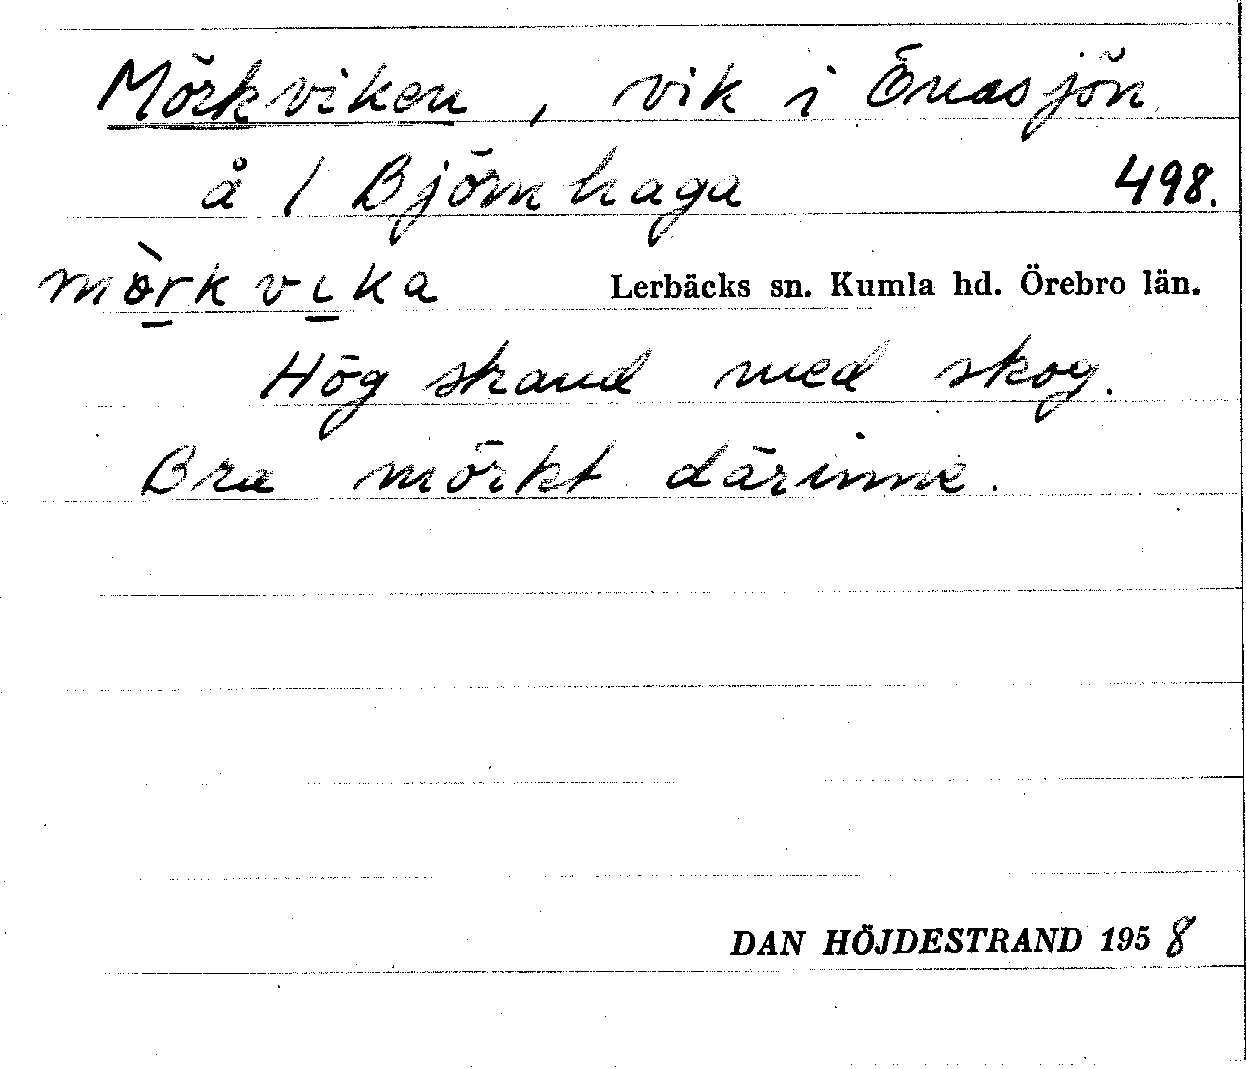 Mörkviken, vik i Önasjön
å 1 Björnhaga 498.
mòrkvika Lerbäcks sn. Kumla hd. Örebro län.
Hög strand med skog.
Bra mörkt därinne.
DAN HÖJDESTRAND 1958